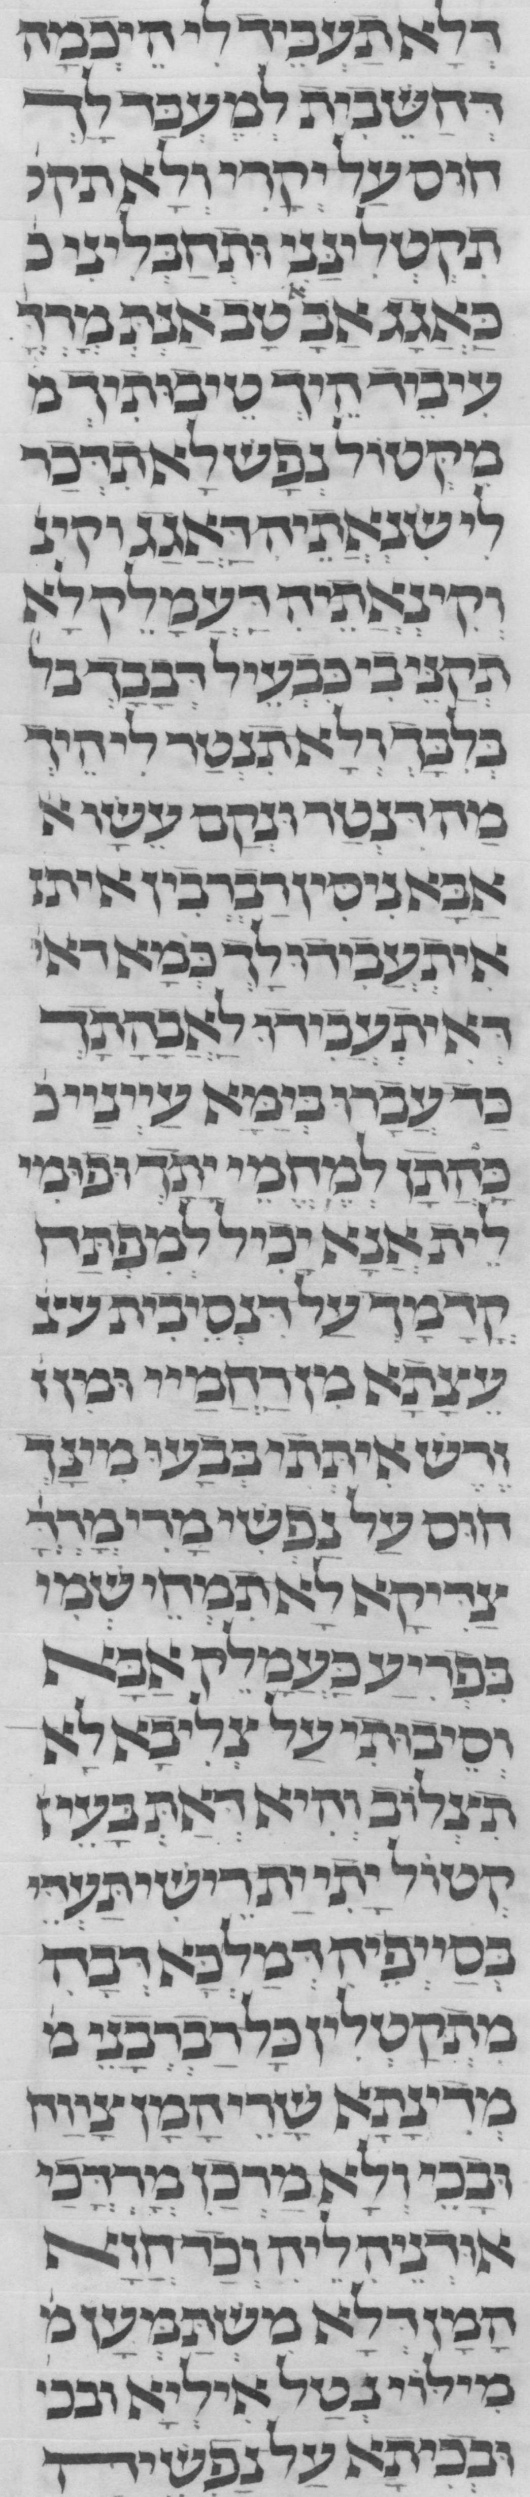 דְּלָא תַעְבֵיד לִי הֵיכְמָה
דְּחַשֵׁבִית לְמֶעְבַּד לָךְ
חוּס עַל יְקָרִי וְלָא תִקט
תִקְטְלִינַנִי וּתְחַבְּלִינִי כ
כַּאֲגַג אַבָּא טָב אַנְתְּ מָרְדֳּ
עִיבֵיד הֵיךְ טֵיבוּתִיךְ מ
מִקְטוֹל נְפָשׁ לָא תִדְכַּר
לִי שִׂנְאֲתֵיהּ דַּאֲגַג וקינ
וְקִינְאֲתֵיהּ דַּעֲמָלֵק לָא
תְקַנֵּי בִי כִּבְעֵיל דְּבָבָךְ בל
בְּלִבָּךְ וְלָא תִנְטַר לִי הֵיךְ
מַה דִּנְטַר וּנְקַם עֵשָׂו א
אַבָּא נִיסִין רַבְרְבִין אית
אִיתְעֲבִידוּ לָךְ כְּמָא דאי
דְּאִיתְעֲבִידוּ לַאֲבָהָתָךְ
כַּד עֲבָרוּ בְיַמָּא עַיְינַיי כ
כָּהֲתָן לְמֶחֱמֵי יָתָךְ וּפוּמִי
לֵית אֲנָא יָכִיל לְמִפְתַּח
קֳדָמָךְ עַל דִּנְסֵיבִית עצ
עֵצָתָא מִן רַחֲמַיי וּמִן ז
זֶרֶשׁ אִיתְּתִי בְּבָעוּ מִינָךְ
חוּס עַל נַפְשִׁי מָרִי מָרְדֳּ
צַדִּיקָא לָא תִמְחֵי שְׁמִי
בִּפְרִיעַ כַּעֲמָלֵק אַבָּא
וְסֵיבוּתִי עַל צְלִיבָא לָא
תִצְלוֹב וְהִיא דְּאַתְּ בָּעֵין
קְטוֹל יָתִי יַת רֵישִׁי תַּעְדֵּי
בְּסַיְיפֵיהּ דְּמַלְכָּא דְּבָהּ
מִתְקַטְלִין כָּל רַבְרְבָנֵי מ
מְדִינָתָא שָׁרֵי הָמָן צָיוַח
וּבָכֵי וְלָא מַרְכֵן מָרְדֳּכַי
אוּדְנֵיהּ לֵיהּ וְכַד חֲזָא
הָמָן דְּלָא מִשְׁתַּמְעָן מ
מִילּוֹי נְטַל אִילְיָא ובכי
וּבְכִיתָא עַל נַפְשֵׁיהּ